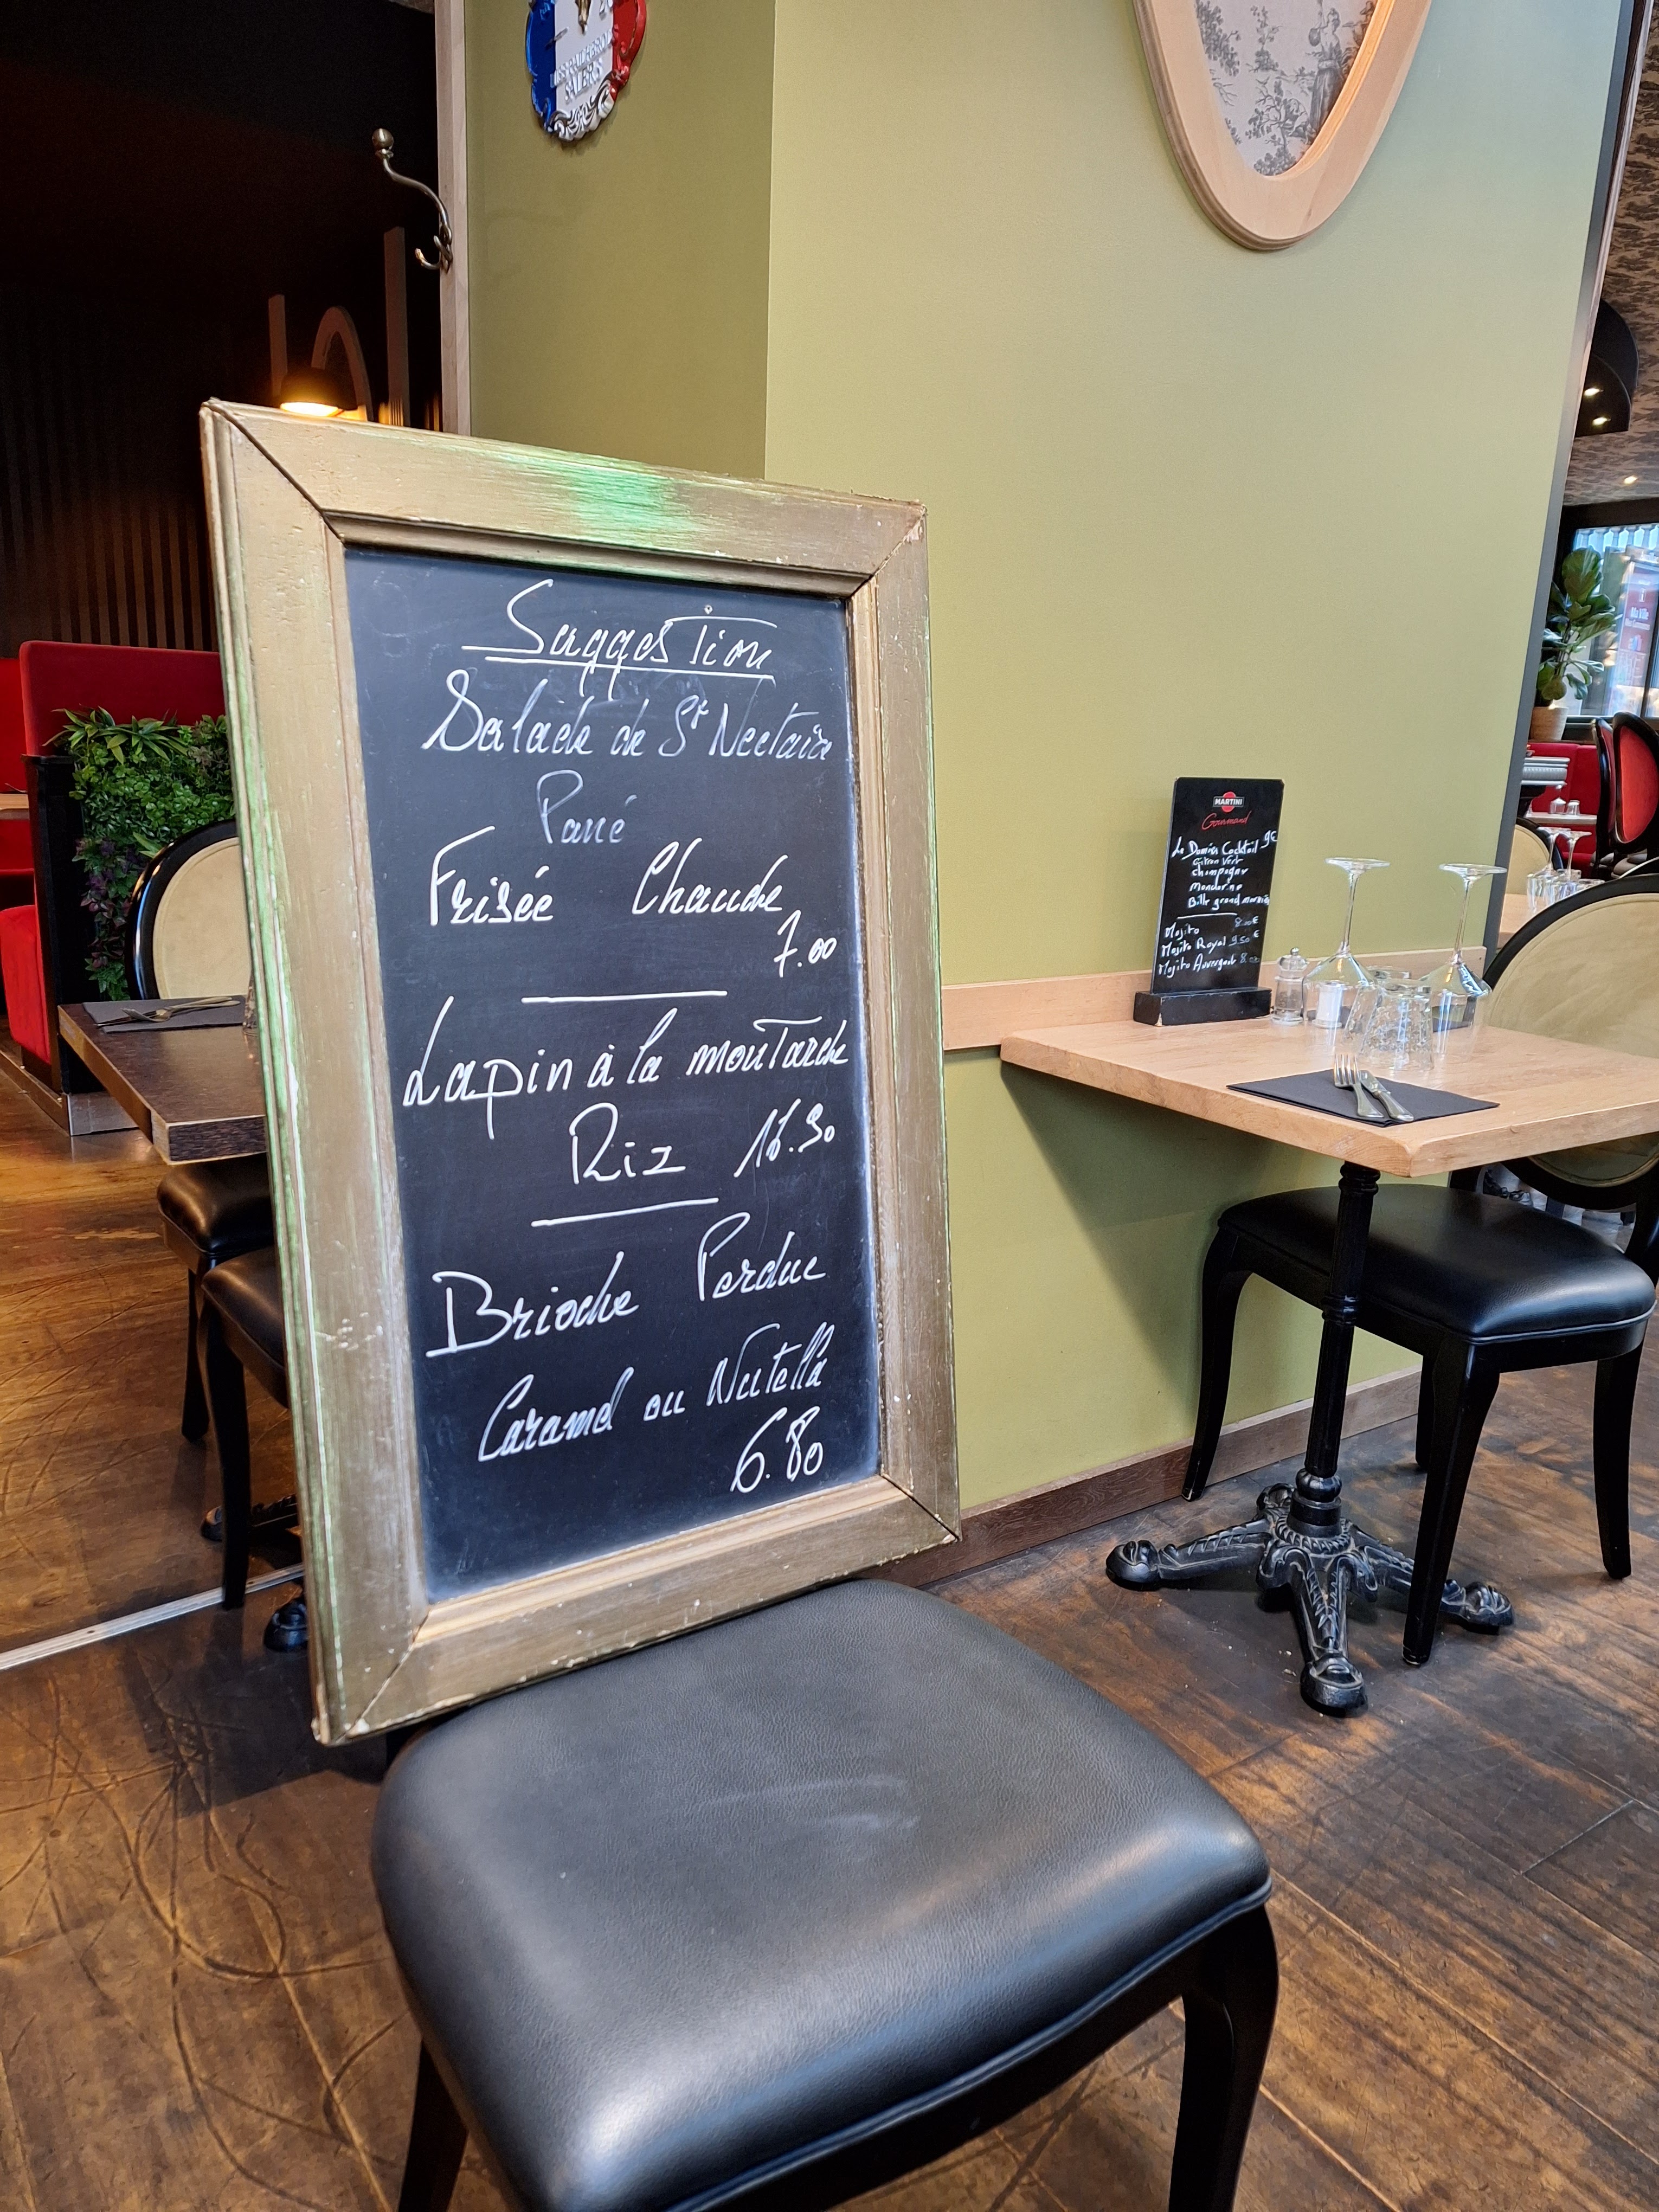 SALERS
Suggestion
Salade de St Nectaire
Pané
Frisée Chaude
7.00
Lapin à la moutarde
Riz 16.90
Brioche Perdue
Caramel ou Nutella
6.80
MARTINI
Gourmand
Le Cocktail 9€
Citron Vert
Champagne
Mandarine
Bille grand
Mojito 8.00€
Mojito Royal 9.50€
Mojito Auvergnat